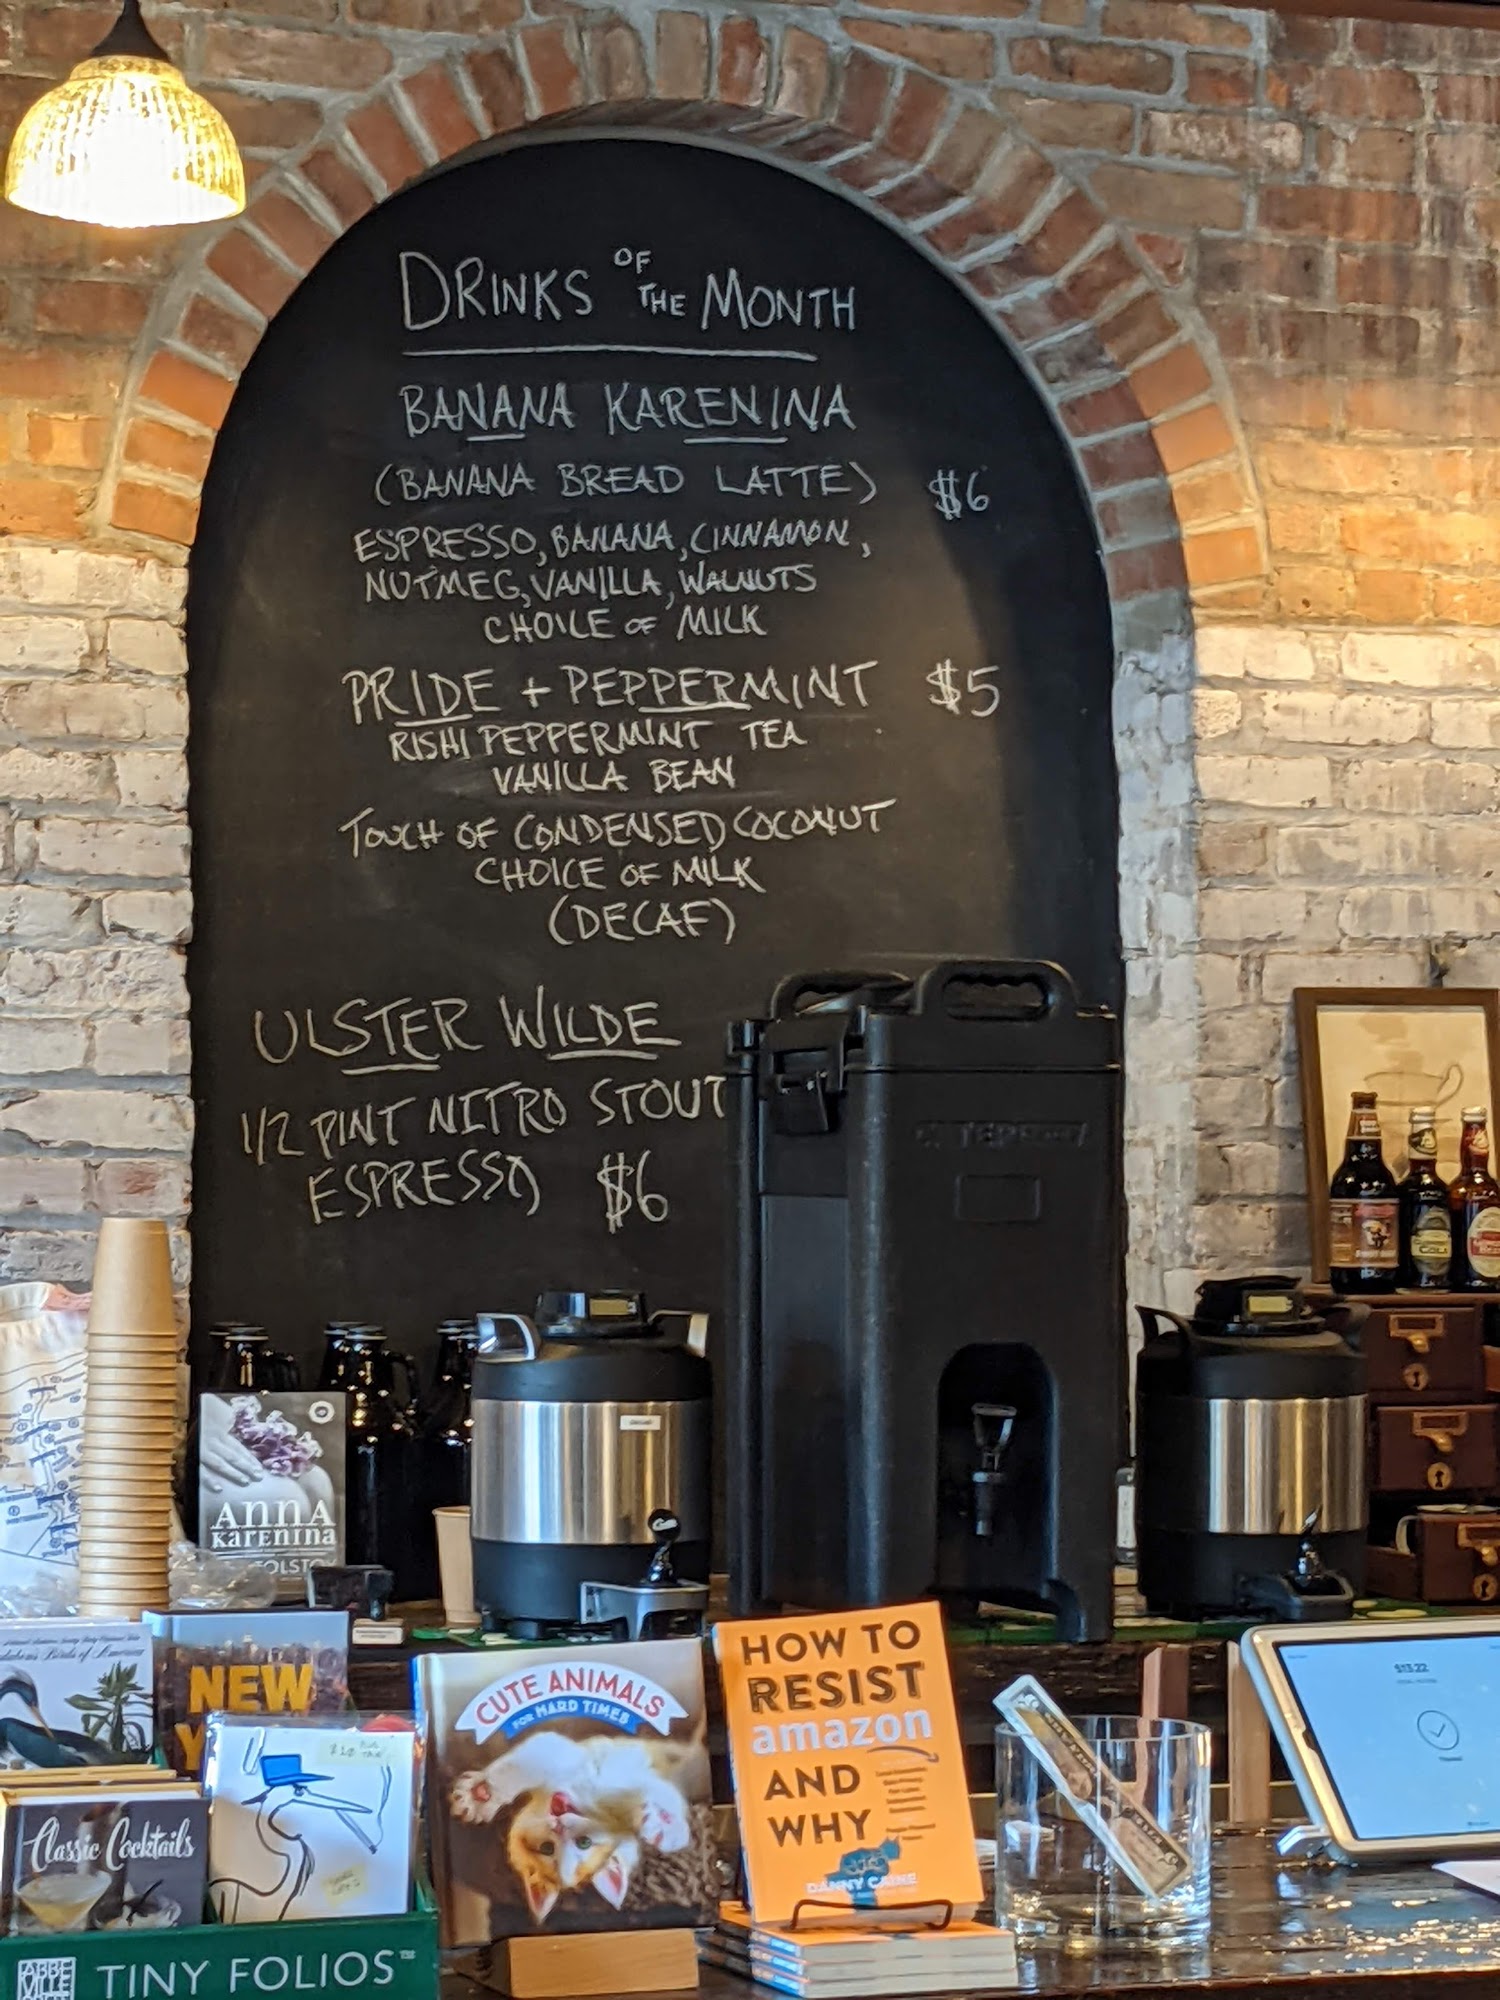 DRINKS OF THE MONTH
BANANA KARENINA
(BANANA BREAD LATTE) $6
ESPRESSO, BANANA, CINNAMON,
NUTMEG, VANILLA, WALNUTS
CHOICE OF MILK
PRIDE + PEPPERMINT $5
RISHI PEPPERMINT TEA
VANILLA BEAN
TOUCH OF CONDENSED COCONUT
CHOICE OF MILK
(DECAF)
ULSTER WILDE
1/2 PINT NITRO STOUT
ESPRESSO $6
ANNA
KARENINA
TOLSTOY
Birds of America
NEW
Classic Cocktails
TINY FOLIOS™
ABBE
VILLE
CUTE ANIMALS
FOR HARD TIMES
HOW TO
RESIST
amazon
AND
WHY
DANNY CAINE
COLA
$13.22